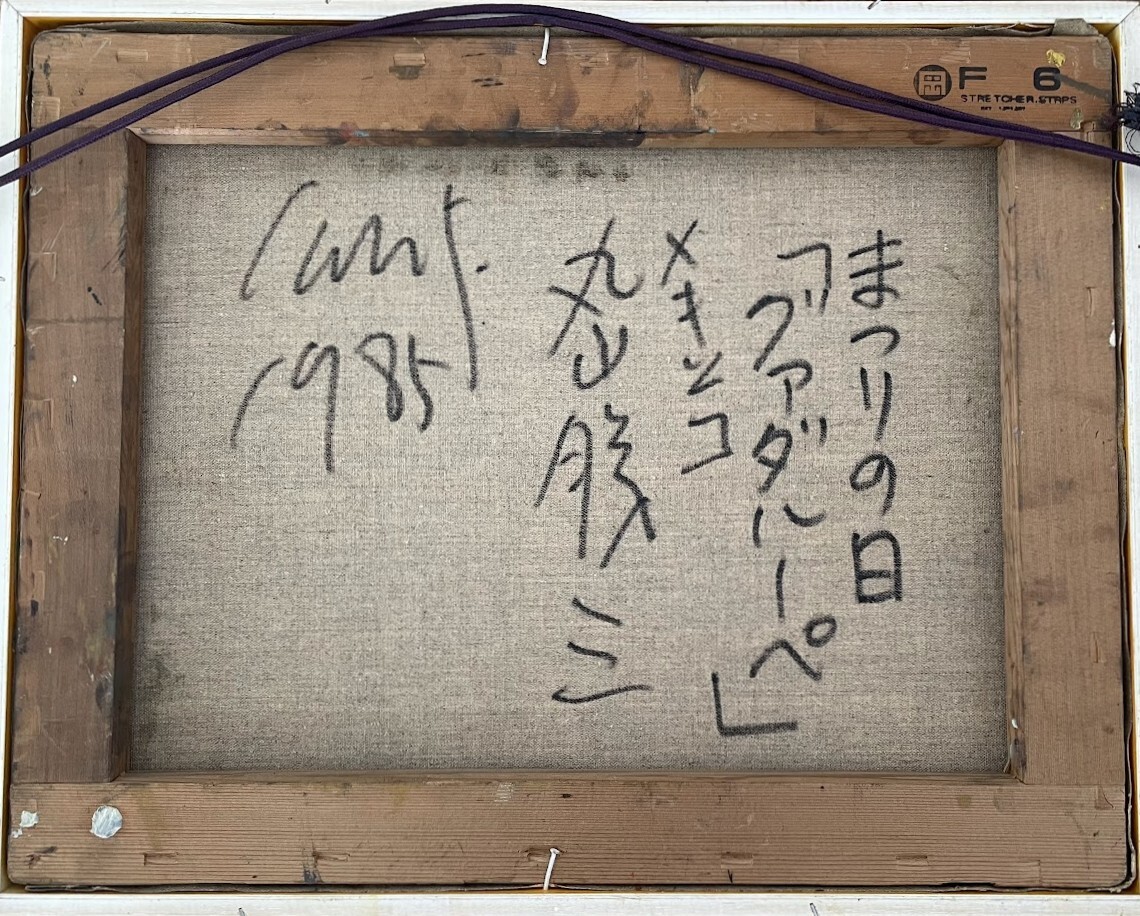 岡 F 6
STRETCHER.STRPS
まつりの日
「グァダルーペ」
メキシコ
丸山勝三
1985